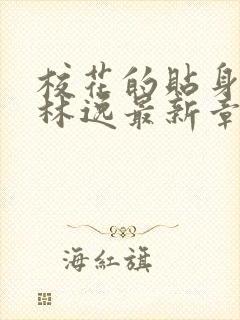 校花的貼身
林逸最新章
海紅旗